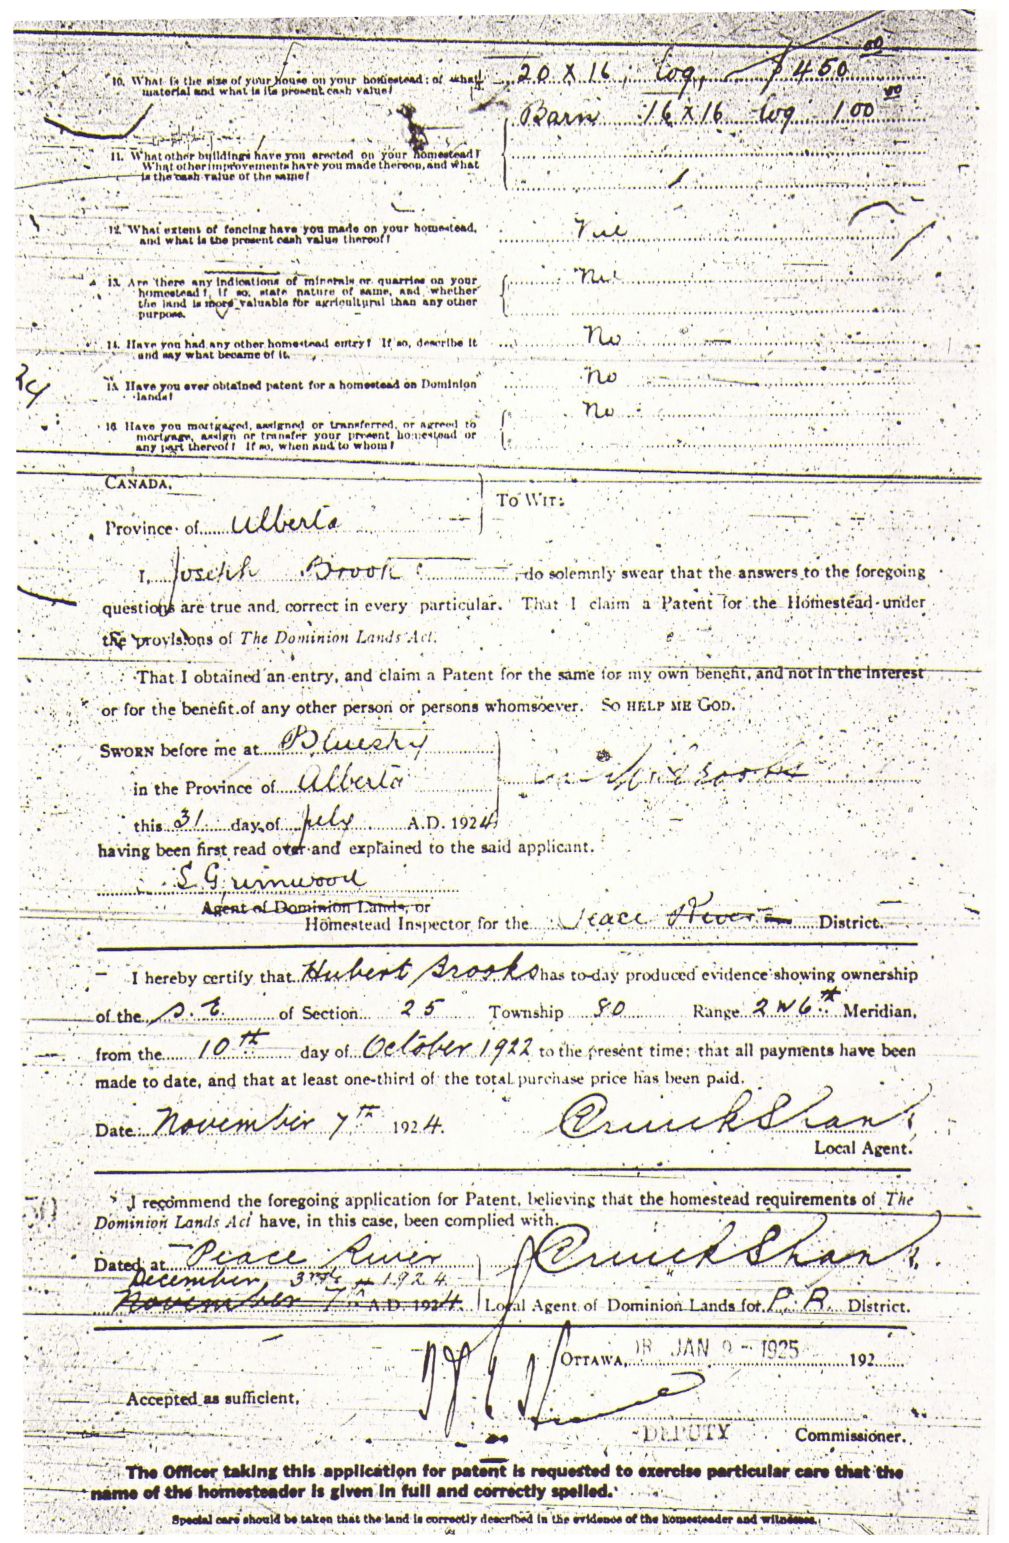 10. What is the size of your house on your homestead; of what 20 X 16, Log, $450 00
material and what is its present cash value?
Barn 16 X 16 Log 100 00
11. What other buildings have you erected on your homestead?
What other improvements have you made thereon, and what
is the cash value of the same?
12. What extent of fencing have you made on your homestead, Nil
and what is the present cash value thereof?
13. Are there any indications of minerals or quarries on your Nil
homestead? If so, state nature of same, and whether
the land is more valuable for agricultural than any other
purpose.
14. Have you had any other homestead entry? If so, describe it No
and say what became of it.
24
15. Have you ever obtained patent for a homestead on Dominion No
lands?
16. Have you mortgaged, assigned or transferred, or agreed to No
mortgage, assign or transfer your present homestead or
any part thereof? If so, when and to whom?
CANADA.
TO WIT:
Province of Alberta
I, Joseph Brooks, do solemnly swear that the answers to the foregoing
questions are true and correct in every particular. That I claim a Patent for the Homestead under
the provisions of The Dominion Lands Act.
That I obtained an entry, and claim a Patent for the same for my own benefit, and not in the interest
or for the benefit of any other person or persons whomsoever. SO HELP ME GOD.
SWORN before me at Bluesky
Brooks
in the Province of Alberta
this 31 day of July A.D. 1924
having been first read over and explained to the said applicant.
S Grimwood
Agent of Dominion Lands, or
Homestead Inspector for the Peace River District.
I hereby certify that Hubert Brooks has to-day produced evidence showing ownership
of the S. E. of Section 25 Township 80 Range 2 W 6th Meridian,
from the 10th day of October 1922 to the present time; that all payments have been
made to date, and that at least one-third of the total purchase price has been paid.
Date November 7th 1924. CruickShank
Local Agent.
I recommend the foregoing application for Patent, believing that the homestead requirements of The
Dominion Lands Act have, in this case, been complied with.
Dated at Peace River CruickShank
December, 3rd 1924
November 7th A.D. 1924 Local Agent of Dominion Lands for P. R. District.
OTTAWA, JAN 1925 192
Accepted as sufficient,
DEPUTY Commissioner.
The Officer taking this application for patent is requested to exercise particular care that the
name of the homesteader is given in full and correctly spelled.
Special care should be taken that the land is correctly described in the evidence of the homesteader and witnesses.